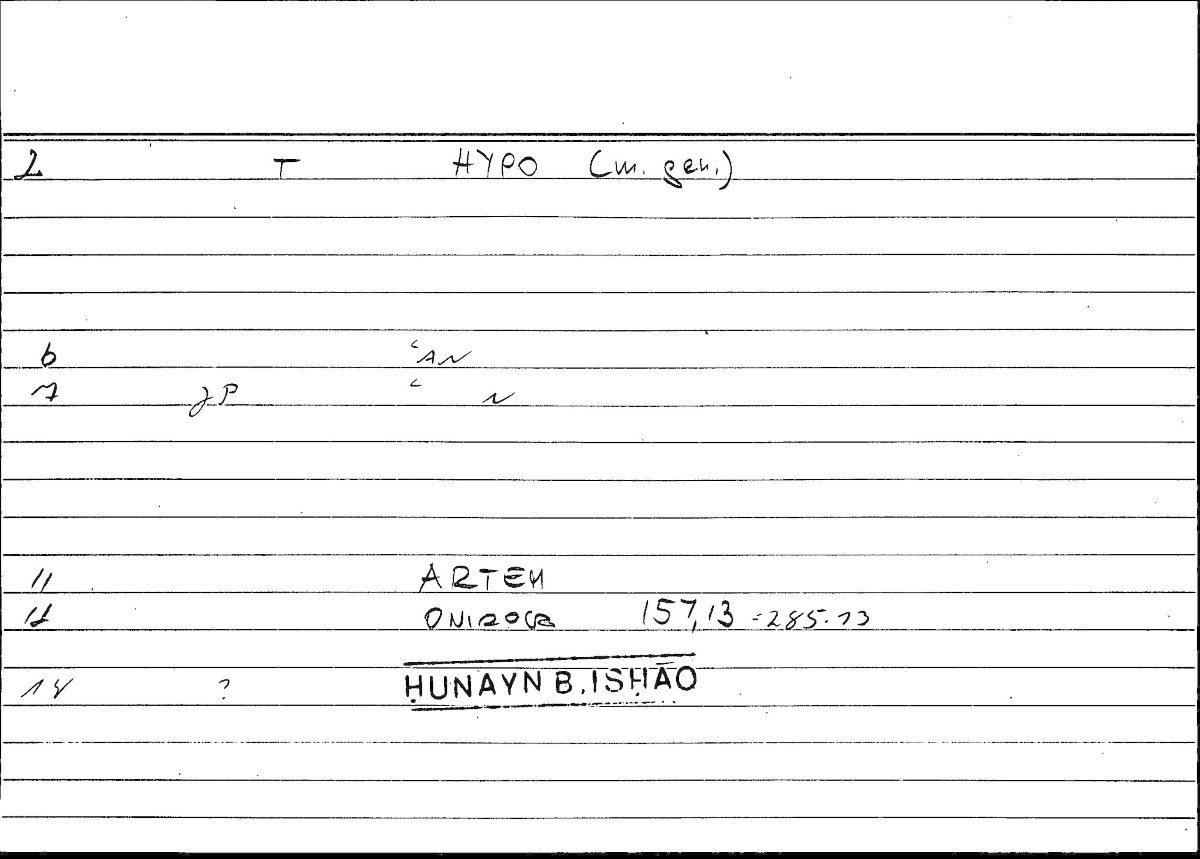 2 T HYPO (m. gen.)
6 ʿAN
7 JP ʿ N
11 ARTEM
12 ONIROCR 157,13 - 285.13
14 ? ḤUNAYN B. ISḤĀQ